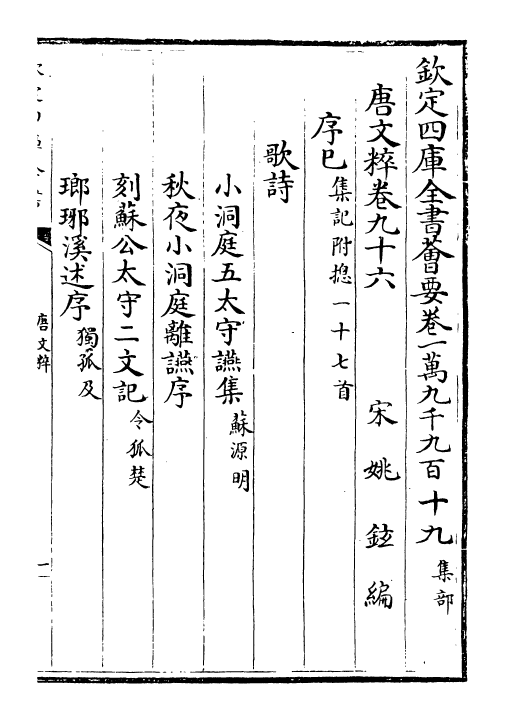 欽定四庫全書薈要卷一萬九千九百十九 集部
唐文粹卷九十六 宋 姚鉉 編
序巳 集記附摠一十七首
歌詩
小洞庭五太守讌集 蘇源明
秋夜小洞庭離讌序
刻蘇公太守二文記 令狐楚
瑯琊溪述序 獨孤及
唐文粹 一